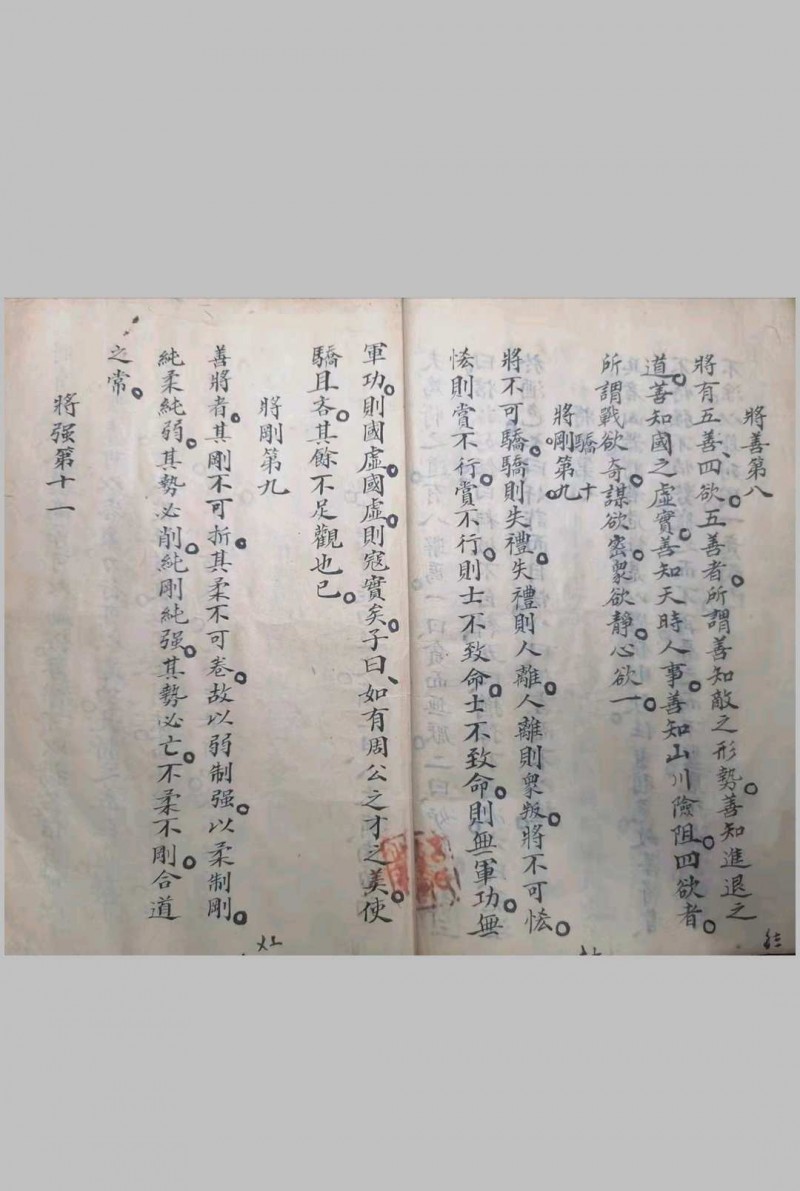 將善第八
將有五善、四欲。五善者。所謂善知敵之形勢。善知進退之
道。善知國之虛實。善知天時人事。善知山川險阻。四欲者。
所謂戰欲奇。謀欲密。衆欲靜。心欲一。
將剛第九
驕十
將不可驕。驕則失禮。失禮則人離。人離則衆叛。將不可恡。
恡則賞不行。賞不行。則士不致命。士不致命。則無軍功。無
軍功。則國虛。國虛。則寇實矣。子曰、如有周公之才之美。使
驕且吝。其餘不足觀也已。
將剛第九
善將者。其剛不可折。其柔不可卷。故以弱制强。以柔制剛。
純柔純弱。其勢必削。純剛純强。其勢必亡。不柔不剛。合道
之常。
將强第十一